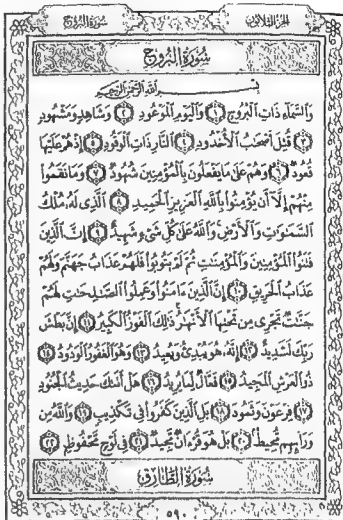 الجزء الثلاثون سورة البروج
سورة البروج
بسم الله الرحمن الرحيم
وَالسَّمَاءِ ذَاتِ الْبُرُوجِ ١ وَالْيَوْمِ الْمَوْعُودِ ٢ وَشَاهِدٍ وَمَشْهُودٍ
٣ قُتِلَ أَصْحَابُ الْأُخْدُودِ ٤ النَّارِ ذَاتِ الْوَقُودِ ٥ إِذْ هُمْ عَلَيْهَا
قُعُودٌ ٦ وَهُمْ عَلَىٰ مَا يَفْعَلُونَ بِالْمُؤْمِنِينَ شُهُودٌ ٧ وَمَا نَقَمُوا
مِنْهُمْ إِلَّا أَن يُؤْمِنُوا بِاللَّهِ الْعَزِيزِ الْحَمِيدِ ٨ الَّذِي لَهُ مُلْكُ
السَّمَٰوَٰتِ وَالْأَرْضِ وَاللَّهُ عَلَىٰ كُلِّ شَيْءٍ شَهِيدٌ ٩ إِنَّ الَّذِينَ
فَتَنُوا الْمُؤْمِنِينَ وَالْمُؤْمِنَٰتِ ثُمَّ لَمْ يَتُوبُوا فَلَهُمْ عَذَابُ جَهَنَّمَ وَلَهُمْ
عَذَابُ الْحَرِيقِ ١٠ إِنَّ الَّذِينَ ءَامَنُوا وَعَمِلُوا الصَّٰلِحَٰتِ لَهُمْ
جَنَّٰتٌ تَجْرِي مِن تَحْتِهَا الْأَنْهَٰرُ ذَٰلِكَ الْفَوْزُ الْكَبِيرُ ١١ إِنَّ بَطْشَ
رَبِّكَ لَشَدِيدٌ ١٢ إِنَّهُ هُوَ يُبْدِئُ وَيُعِيدُ ١٣ وَهُوَ الْغَفُورُ الْوَدُودُ ١٤
ذُو الْعَرْشِ الْمَجِيدُ ١٥ فَعَّالٌ لِّمَا يُرِيدُ ١٦ هَلْ أَتَىٰكَ حَدِيثُ الْجُنُودِ
١٧ فِرْعَوْنَ وَثَمُودَ ١٨ بَلِ الَّذِينَ كَفَرُوا فِي تَكْذِيبٍ ١٩ وَاللَّهُ مِن
وَرَائِهِم مُّحِيطٌ ٢٠ بَلْ هُوَ قُرْءَانٌ مَّجِيدٌ ٢١ فِي لَوْحٍ مَّحْفُوظٍ ٢٢
سورة الطارق
٥٩٠